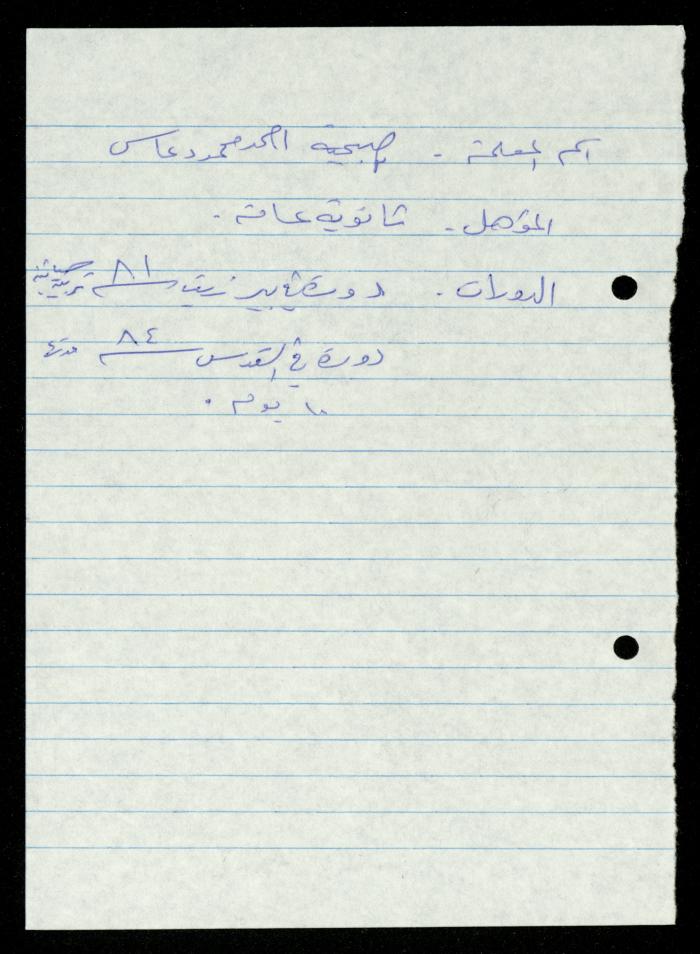 اسم المعلمة - صبحية احمد محمود عباس
المؤهل - ثانوية عامة .
الدورات - دورة في بير زيت سنة ٨١ تربية
دورة في القدس سنة ٨٤ مدتها
١٠ يوم .